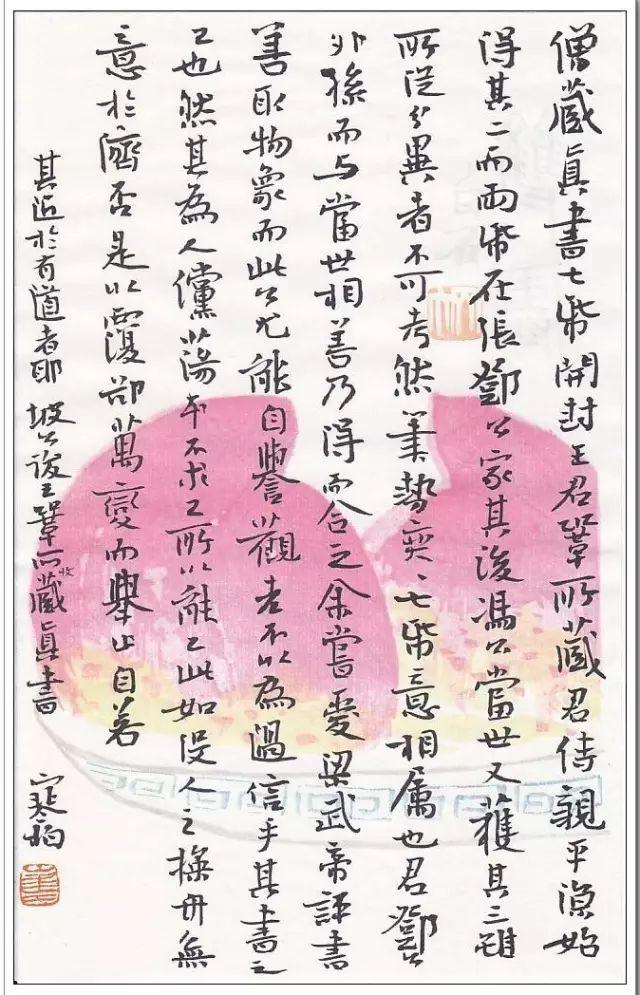 僧藏真書七紙開封王君鞏所藏君侍親平涼始
得其二而兩紙在張鄧公家其後馮公當世又獲其三雖
所從分異者不可考然筆勢奕々七紙意相属也君鄧公
外孫而与當世相善乃得而合之余嘗愛梁武帝評書
善取物象而此公尤能自譽觀者不以為過信乎其書之
工也然其為人儻蕩本不求工所以能工此如没人之操舟無
意於濟否是以覆卻萬變而舉止自若
其近於有道者耶 坡公跋王鞏所收藏真書 寒柏